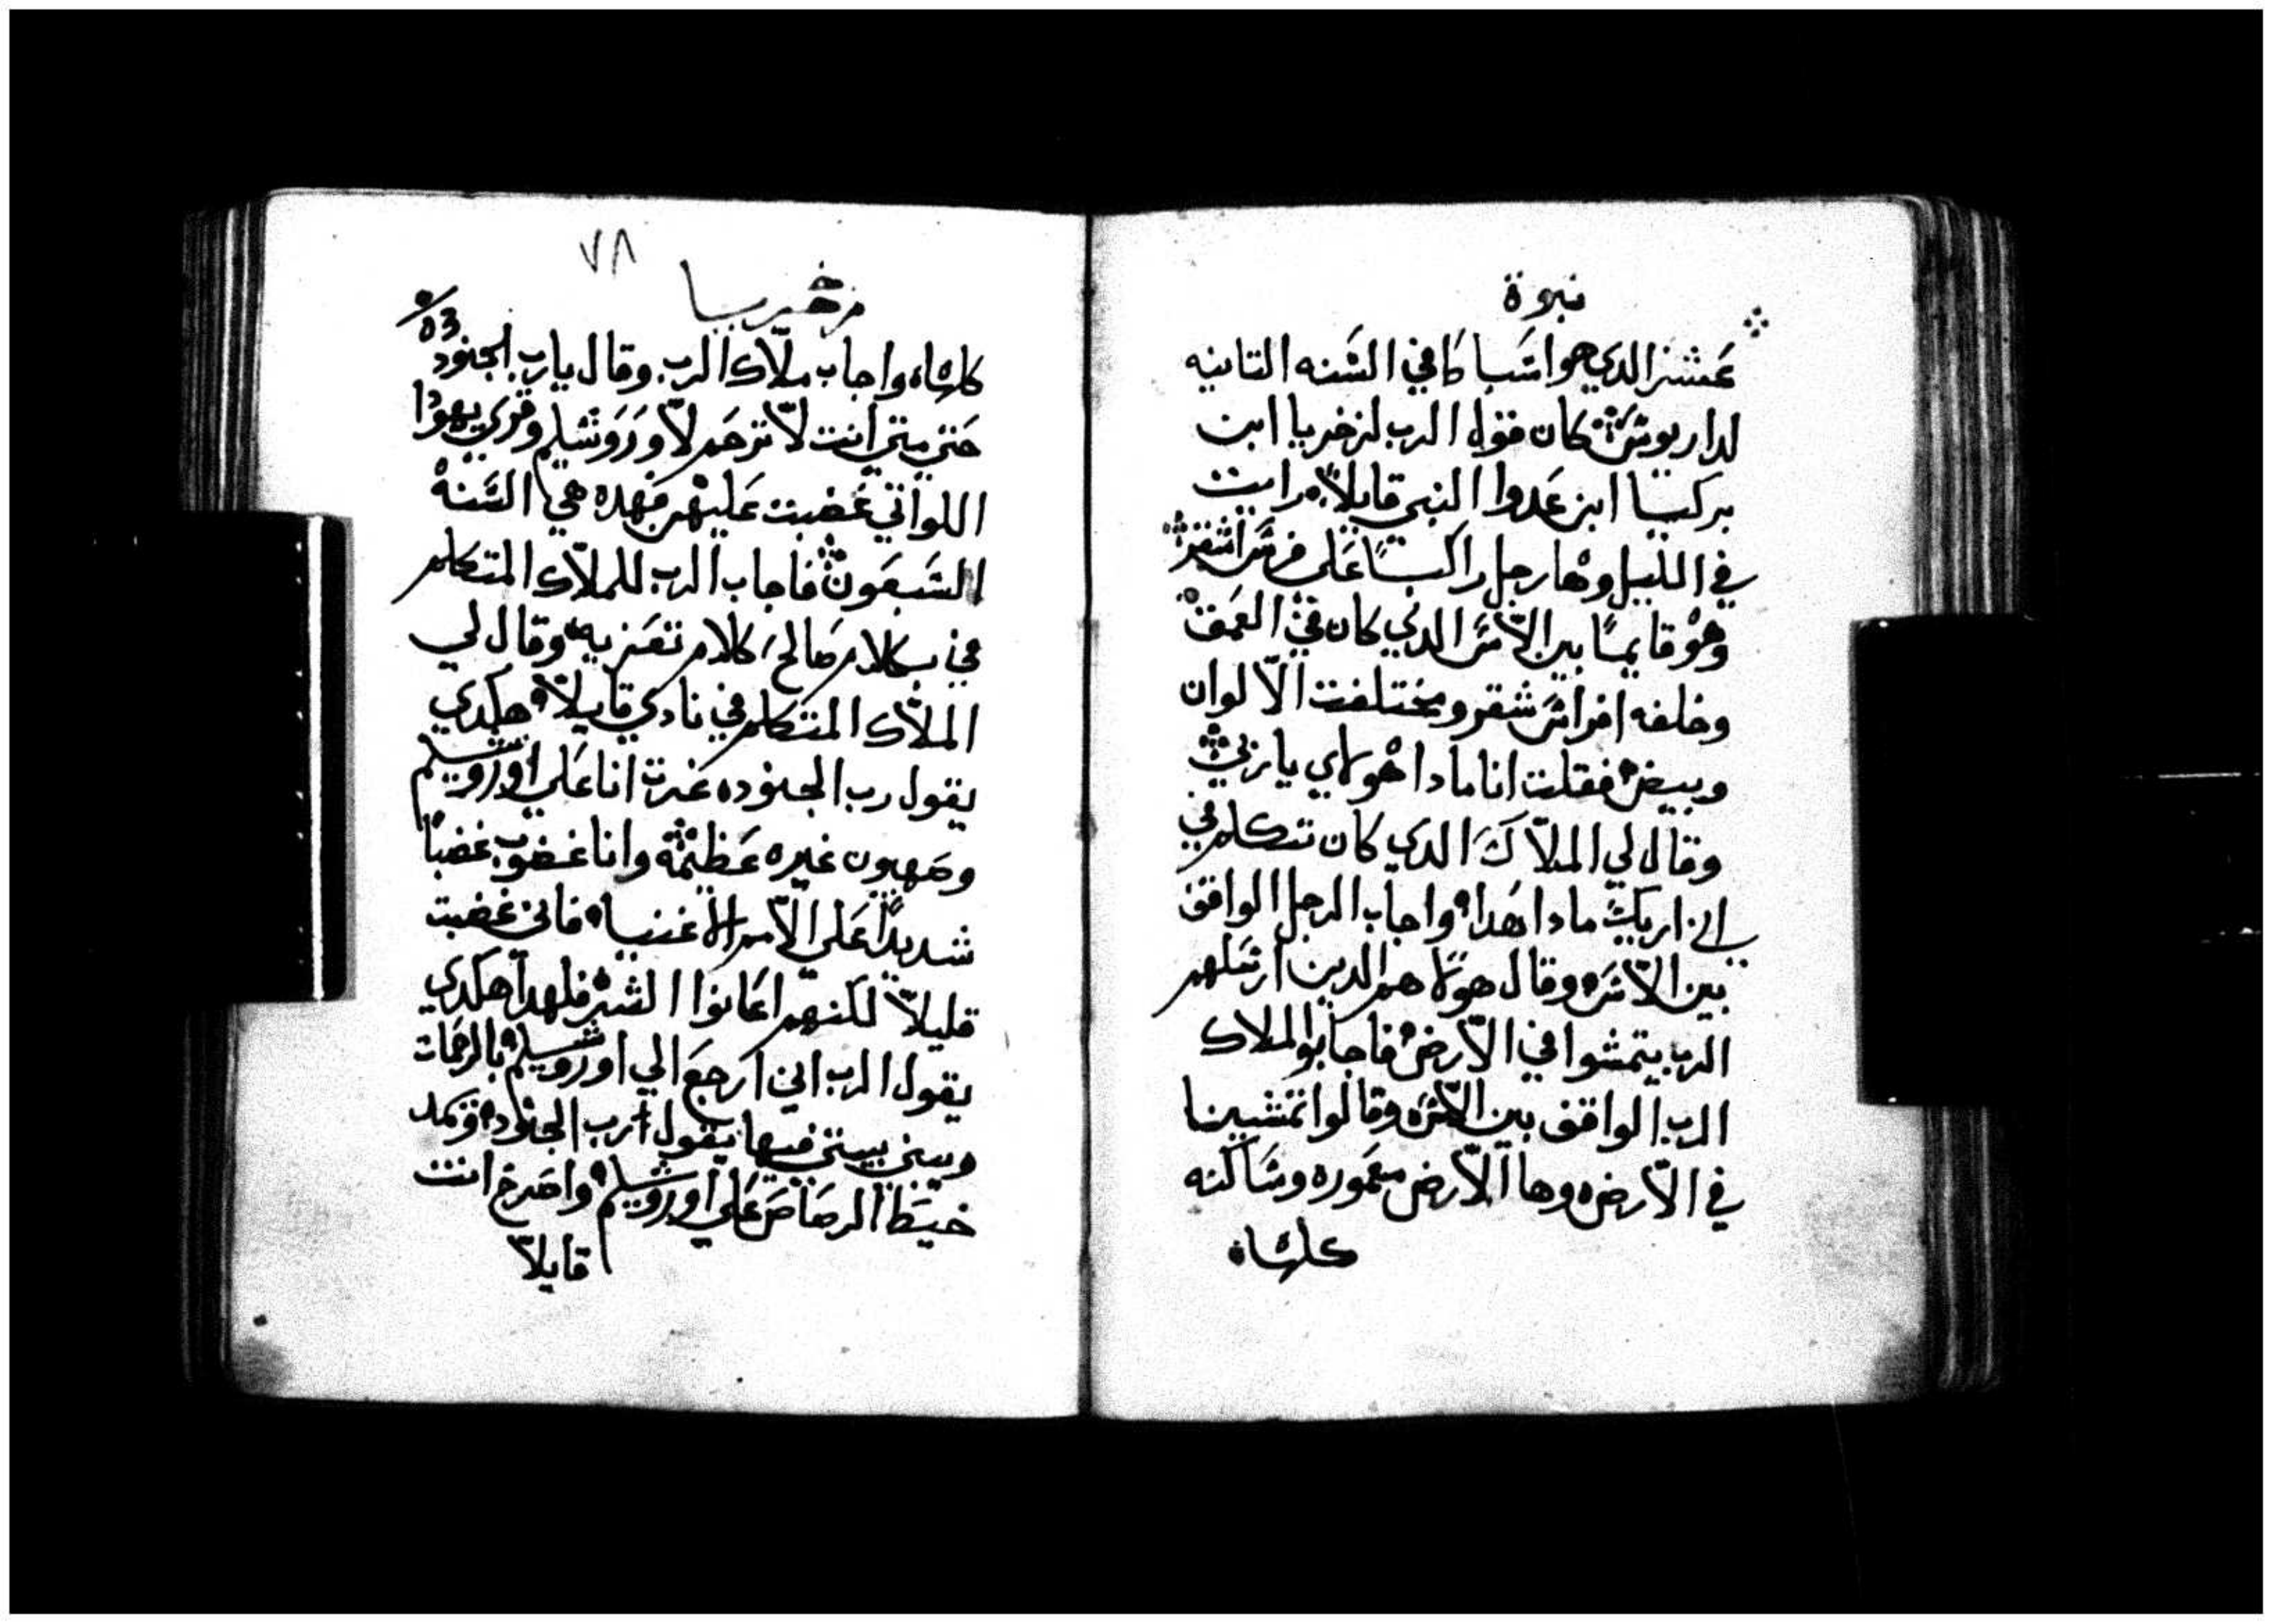 نبوة
عشر الدي هو اسباكا في السنه التانيه
لداريوس كان قول الرب لزخريا ابن
بركيا ابن عدوا النبي قايلاً رايت
في الليل وها رجل راكباً علي فرس اشقر
وهو قايماً بين الآس الدي كان في العمق
وخلفه افراس شقر ومختلفت الالوان
وبيض فقلت انا مادا هولاي يا ربي
وقال لي الملاك الدي كان تتكلم في
اني اريك مادا هدا واجاب الرجل الواقف
بين الآس وقال هولا هم الدين ارسلهم
الرب يتمشوا في الارض فاجابوا الملاك
الرب الواقف بين الآس وقالوا تمشينا
في الارض وها الارض معموره وساكنه
كلها
٧٨
زخريا
كلها واجاب ملاك الرب وقال يارب الجنود
حتي متي انت لا ترحم لاوروشليم وقري يهودا
اللواتي غضبت عليهم فهده هي السنة
السبعون فاجاب الرب للملاك المتكلم
في بكلام صالح كلام تعزيه وقال لي
الملاك المتكلم في نادي قايلاً هكدي
يقول رب الجنود غرت انا علي اوروشليم
وصهيون غيره عظيمة وانا غضوب غضباً
شديداً علي الامم الاغنيا فاني غضبت
قليلاً لكنهم اعانوا الشر فلهدا هكدي
يقول الرب اني ارجع الي اوروشليم بالرحمات
ويبني بيتي فيها يقول رب الجنود ويمد
خيط الرصاص علي اوروشليم واصرخ انت
قايلاً